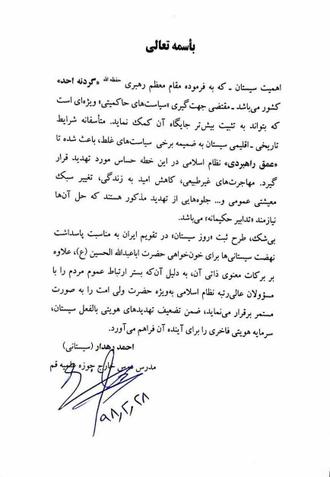 بأسمه تعالی
اهمیت سیستان ـ که به فرموده مقام معظم رهبری حفظه الله «گردنه احد»
کشور می‌باشد ـ مقتضی جهت‌گیری «سیاست‌های حاکمیتی» ویژه‌ای است
که بتواند به تثبیت بیش‌تر جایگاه آن کمک نماید. متأسفانه شرایط
تاریخی ـ اقلیمی سیستان به ضمیمه برخی سیاست‌های غلط، باعث شده تا
«عمق راهبردی» نظام اسلامی در این خطه حساس مورد تهدید قرار
گیرد. مهاجرت‌های غیرطبیعی، کاهش امید به زندگی، تغییر سبک
معیشتی عمومی و... جلوه‌هایی از تهدید مذکور هستند که حل آن‌ها
نیازمند «تدابیر حکیمانه» می‌باشد.
بی‌شک، طرح ثبت «روز سیستان» در تقویم ایران به مناسبت پاسداشت
نهضت سیستانی‌ها برای خون‌خواهی حضرت اباعبدالله الحسین (ع)، علاوه
بر برکات معنوی ذاتی آن، به دلیل آن‌که بستر ارتباط عموم مردم را با
مسؤولان عالی‌رتبه نظام اسلامی به‌ویژه حضرت ولی امت را به صورت
مستمر برقرار می‌نماید، ضمن تضعیف تهدیدهای هویتی بالفعل سیستان،
سرمایه هویتی فاخری را برای آینده آن فراهم می‌آورد.
احمد رهدار (سیستانی)
مدرس درس خارج حوزه علمیه قم
۹۸,۲,۲۸